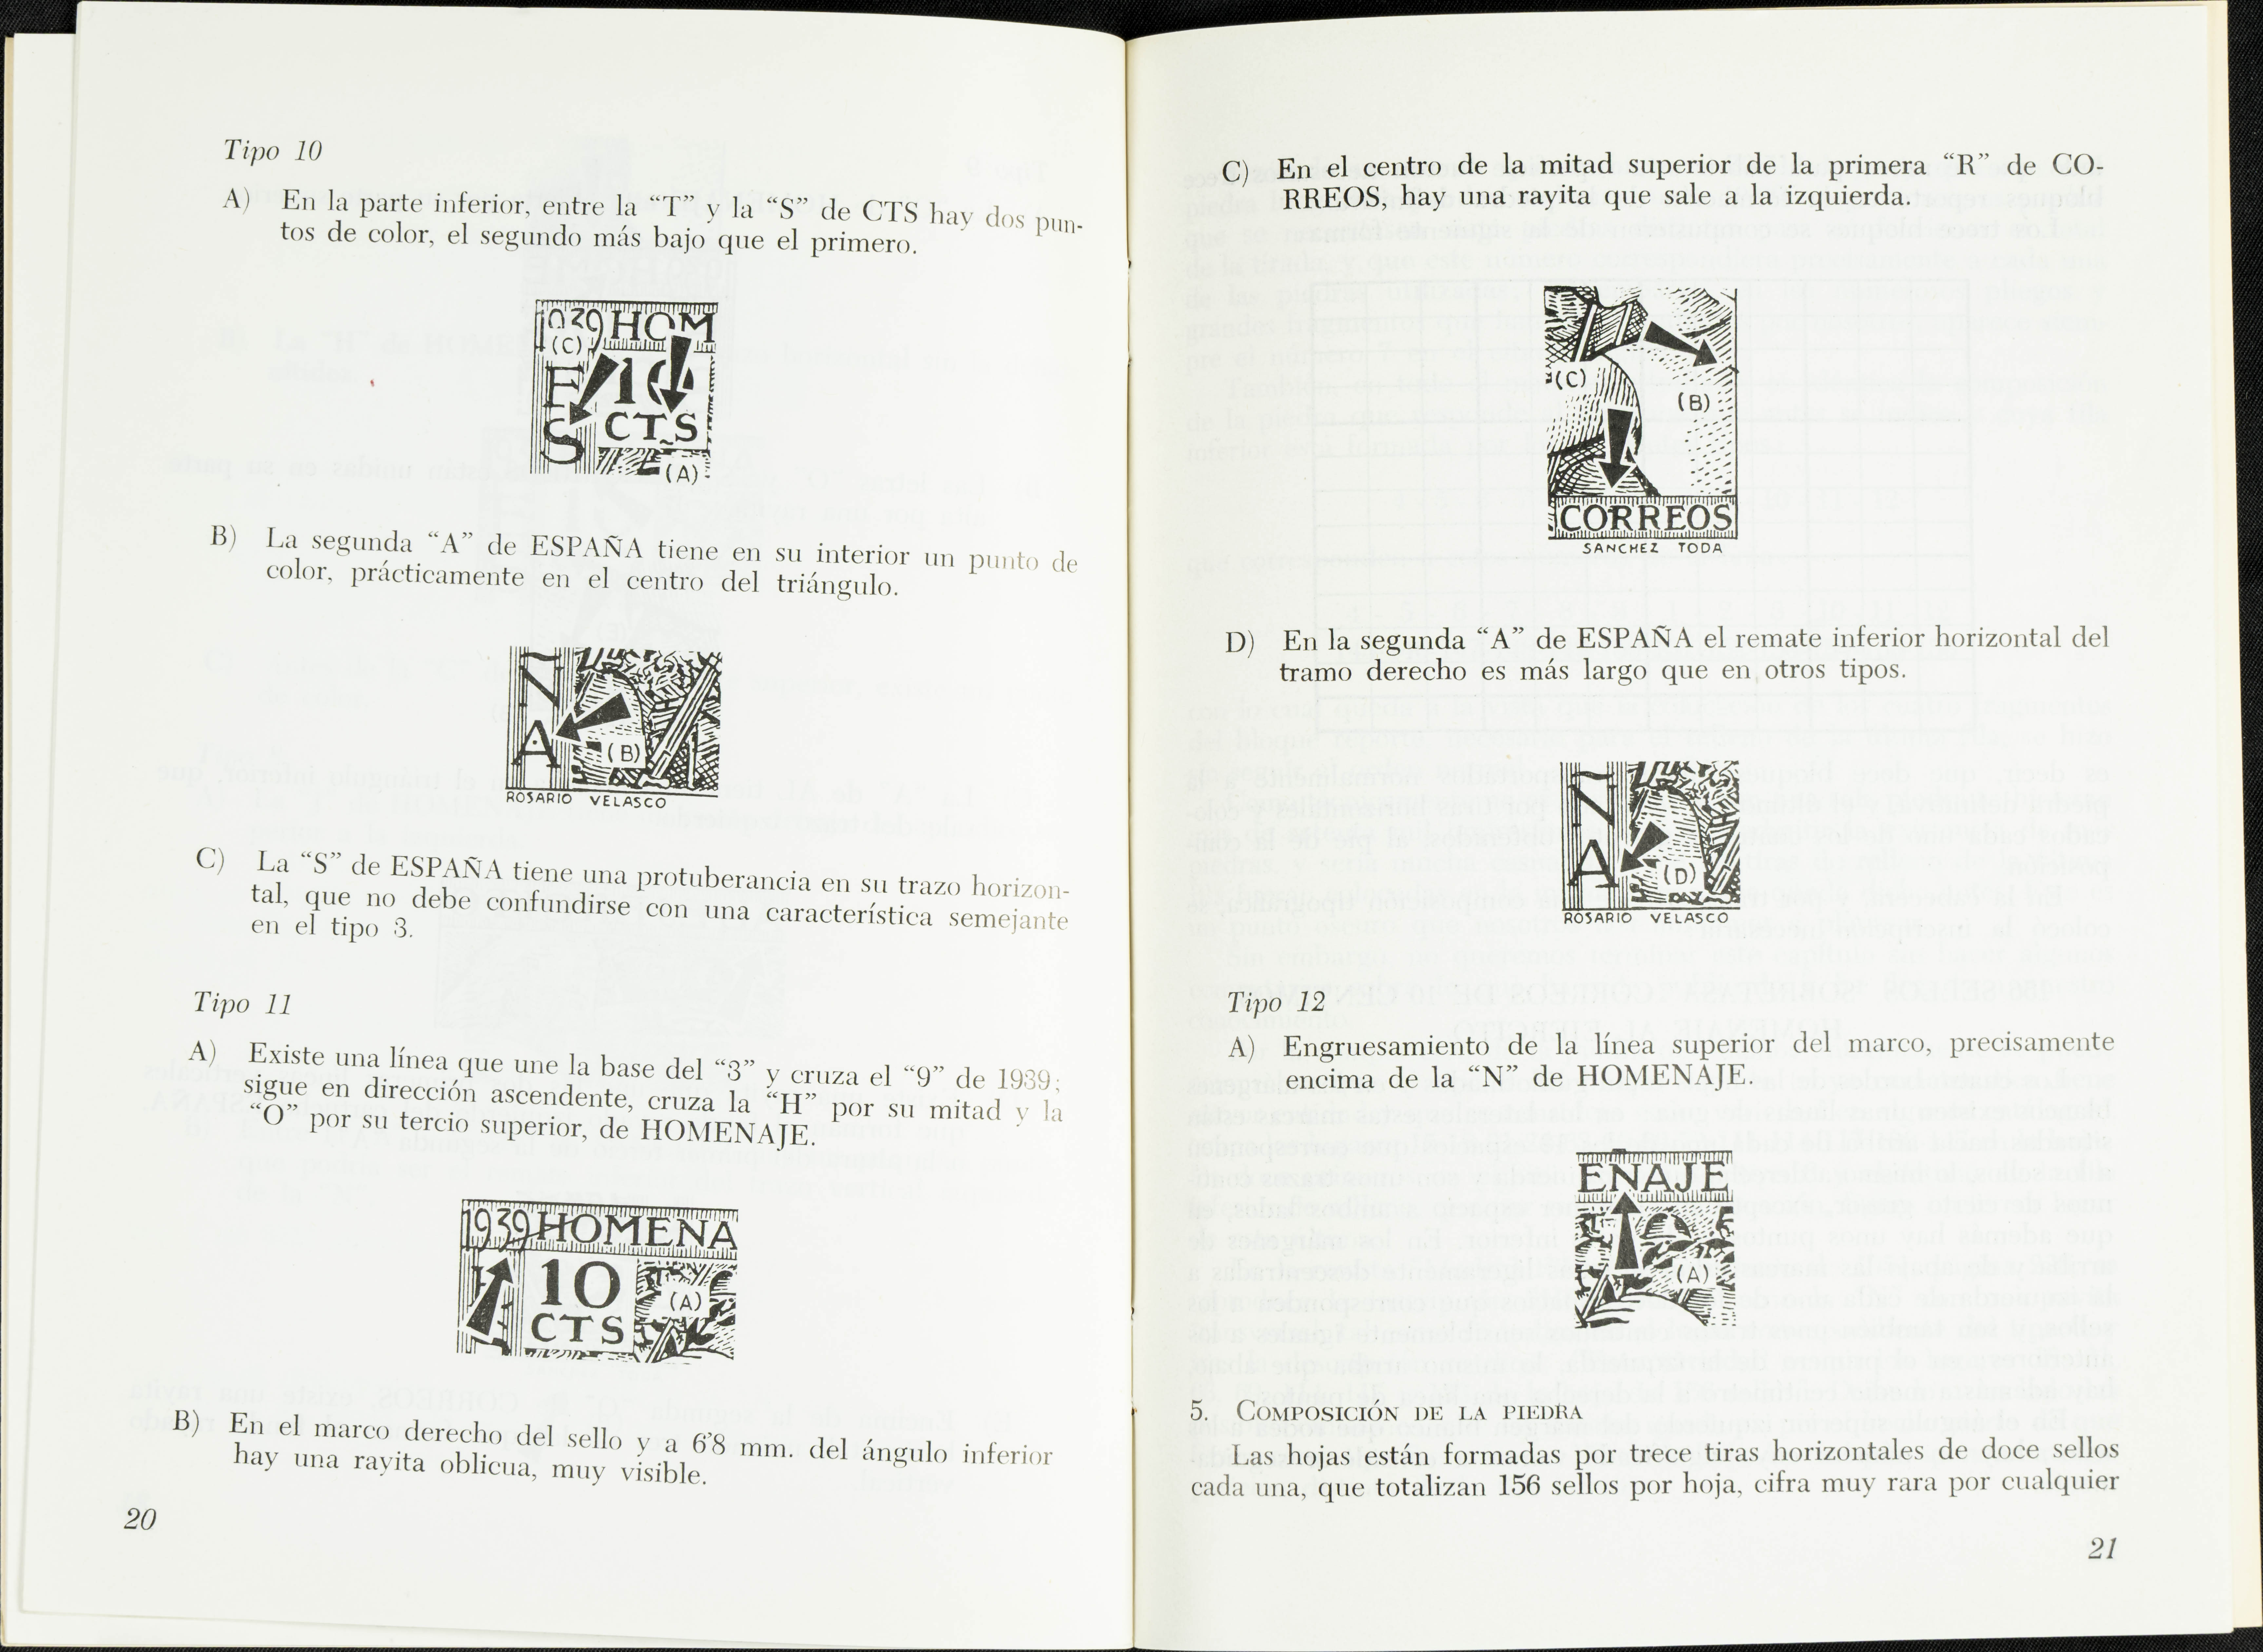 Tipo 10
A) En la parte inferior, entre la “T” y la “S” de CTS hay dos pun-
tos de color, el segundo más bajo que el primero.
1939 HOM
(C)
E 10
S CTS
(A)
B) La segunda “A” de ESPAÑA tiene en su interior un punto de
color, prácticamente en el centro del triángulo.
Ñ
A
(B)
ROSARIO VELASCO
C) La “S” de ESPAÑA tiene una protuberancia en su trazo horizon-
tal, que no debe confundirse con una característica semejante
en el tipo 3.
Tipo 11
A) Existe una línea que une la base del “3” y cruza el “9” de 1939;
sigue en dirección ascendente, cruza la “H” por su mitad y la
“O” por su tercio superior, de HOMENAJE.
1939 HOMENA
10
(A)
CTS
B) En el marco derecho del sello y a 6’8 mm. del ángulo inferior
hay una rayita oblicua, muy visible.
20
C) En el centro de la mitad superior de la primera “R” de CO-
RREOS, hay una rayita que sale a la izquierda.
(C)
(B)
CORREOS
SANCHEZ TODA
D) En la segunda “A” de ESPAÑA el remate inferior horizontal del
tramo derecho es más largo que en otros tipos.
Ñ
A
(D)
ROSARIO VELASCO
Tipo 12
A) Engruesamiento de la línea superior del marco, precisamente
encima de la “N” de HOMENAJE.
ENAJE
(A)
5. COMPOSICIÓN DE LA PIEDRA
Las hojas están formadas por trece tiras horizontales de doce sellos
cada una, que totalizan 156 sellos por hoja, cifra muy rara por cualquier
21